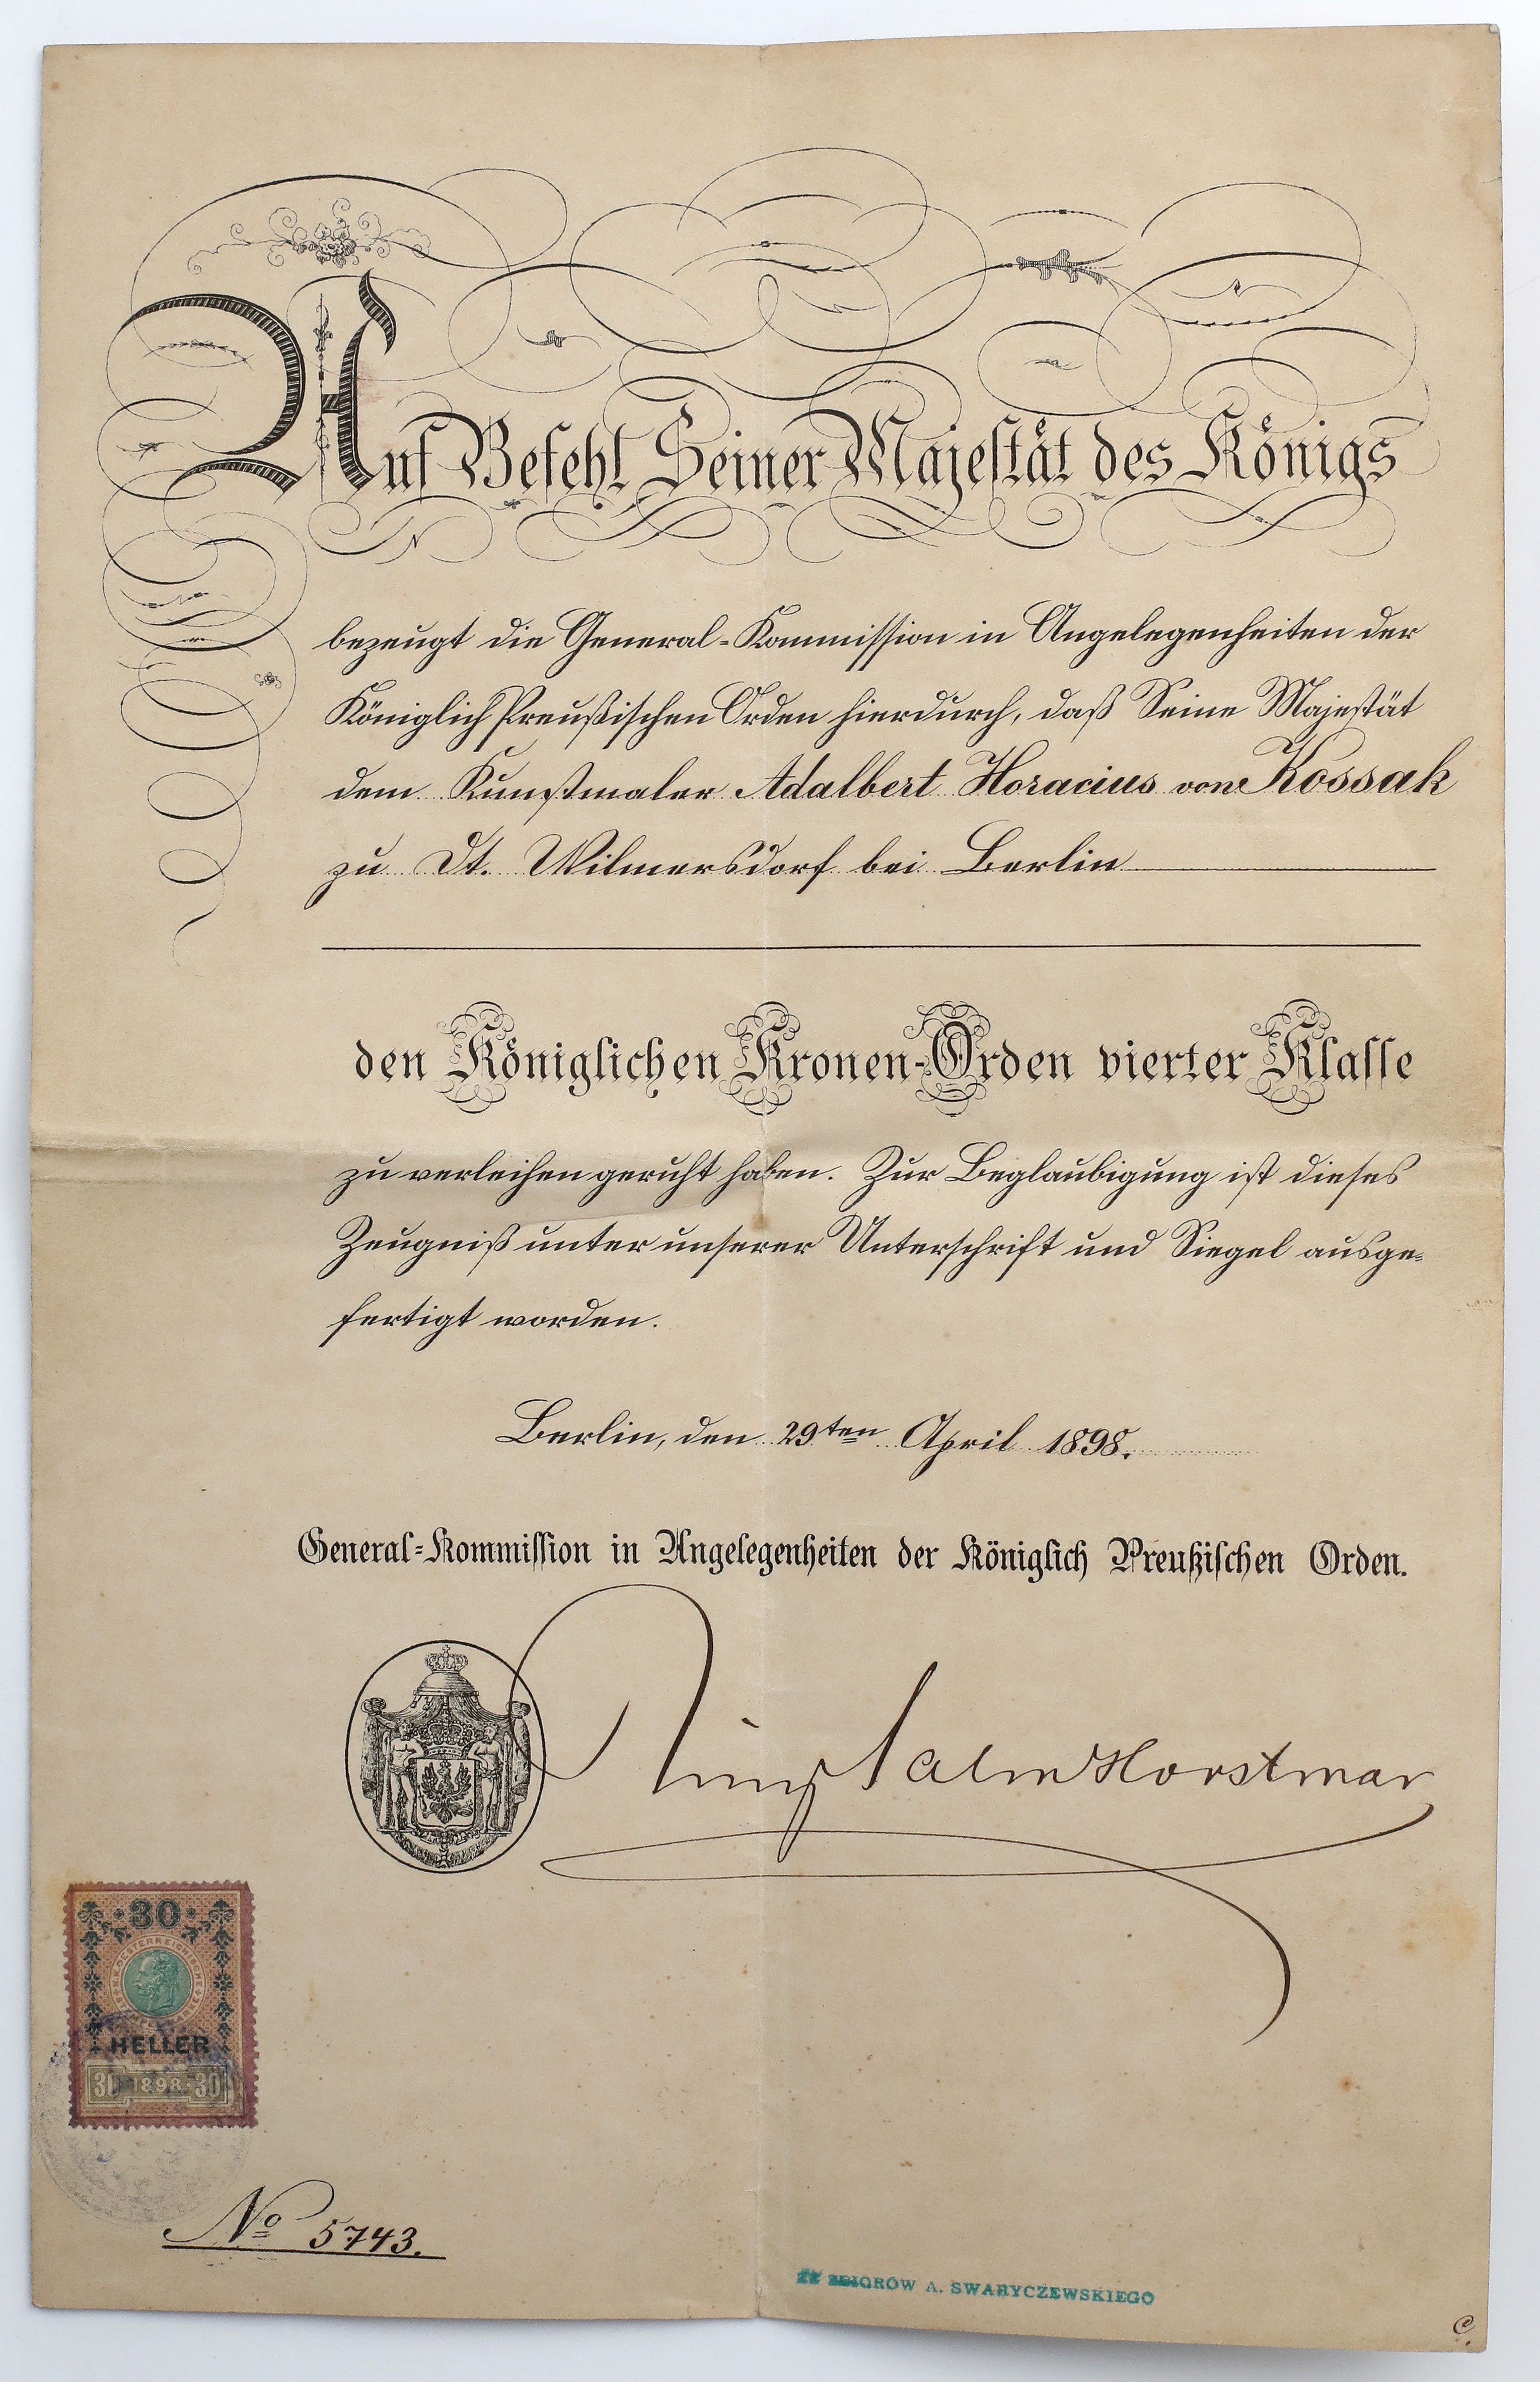 Auf Befehl Seiner Majestät des Königs
bezeugt die General-Kommission in Angelegenheiten der
Königlich Preußischen Orden hierdurch, daß Seine Majestät
dem Kunstmaler Adalbert Horacius von Kossak
zu Dt. Wilmersdorf bei Berlin
den Königlichen Kronen-Orden vierter Klasse
zu verleihen geruht haben. Zur Beglaubigung ist dieses
Zeugniß unter unserer Unterschrift und Siegel ausge-
fertigt worden.
Berlin, den 29ten April 1898.
General-Kommission in Angelegenheiten der Königlich Preußischen Orden.
Salm Horstmar
30
K.K. OESTERREICHISCHE
HELLER
30 1898 30
No 5743.
ZE ZBIORÓW A. SWARYCZEWSKIEGO
C.